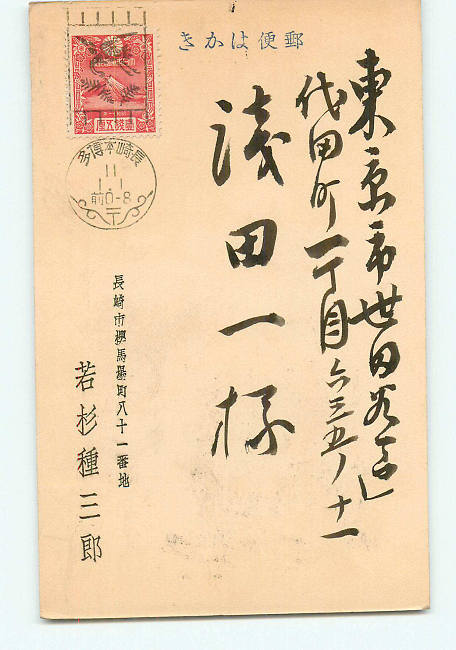 きかは便郵
東京市世田谷区
代田町一丁目六三五ノ十一
浅田一様
長崎本博多
11
1.1
前0-8
長崎市櫻馬場町八十一番地
若杉種三郎